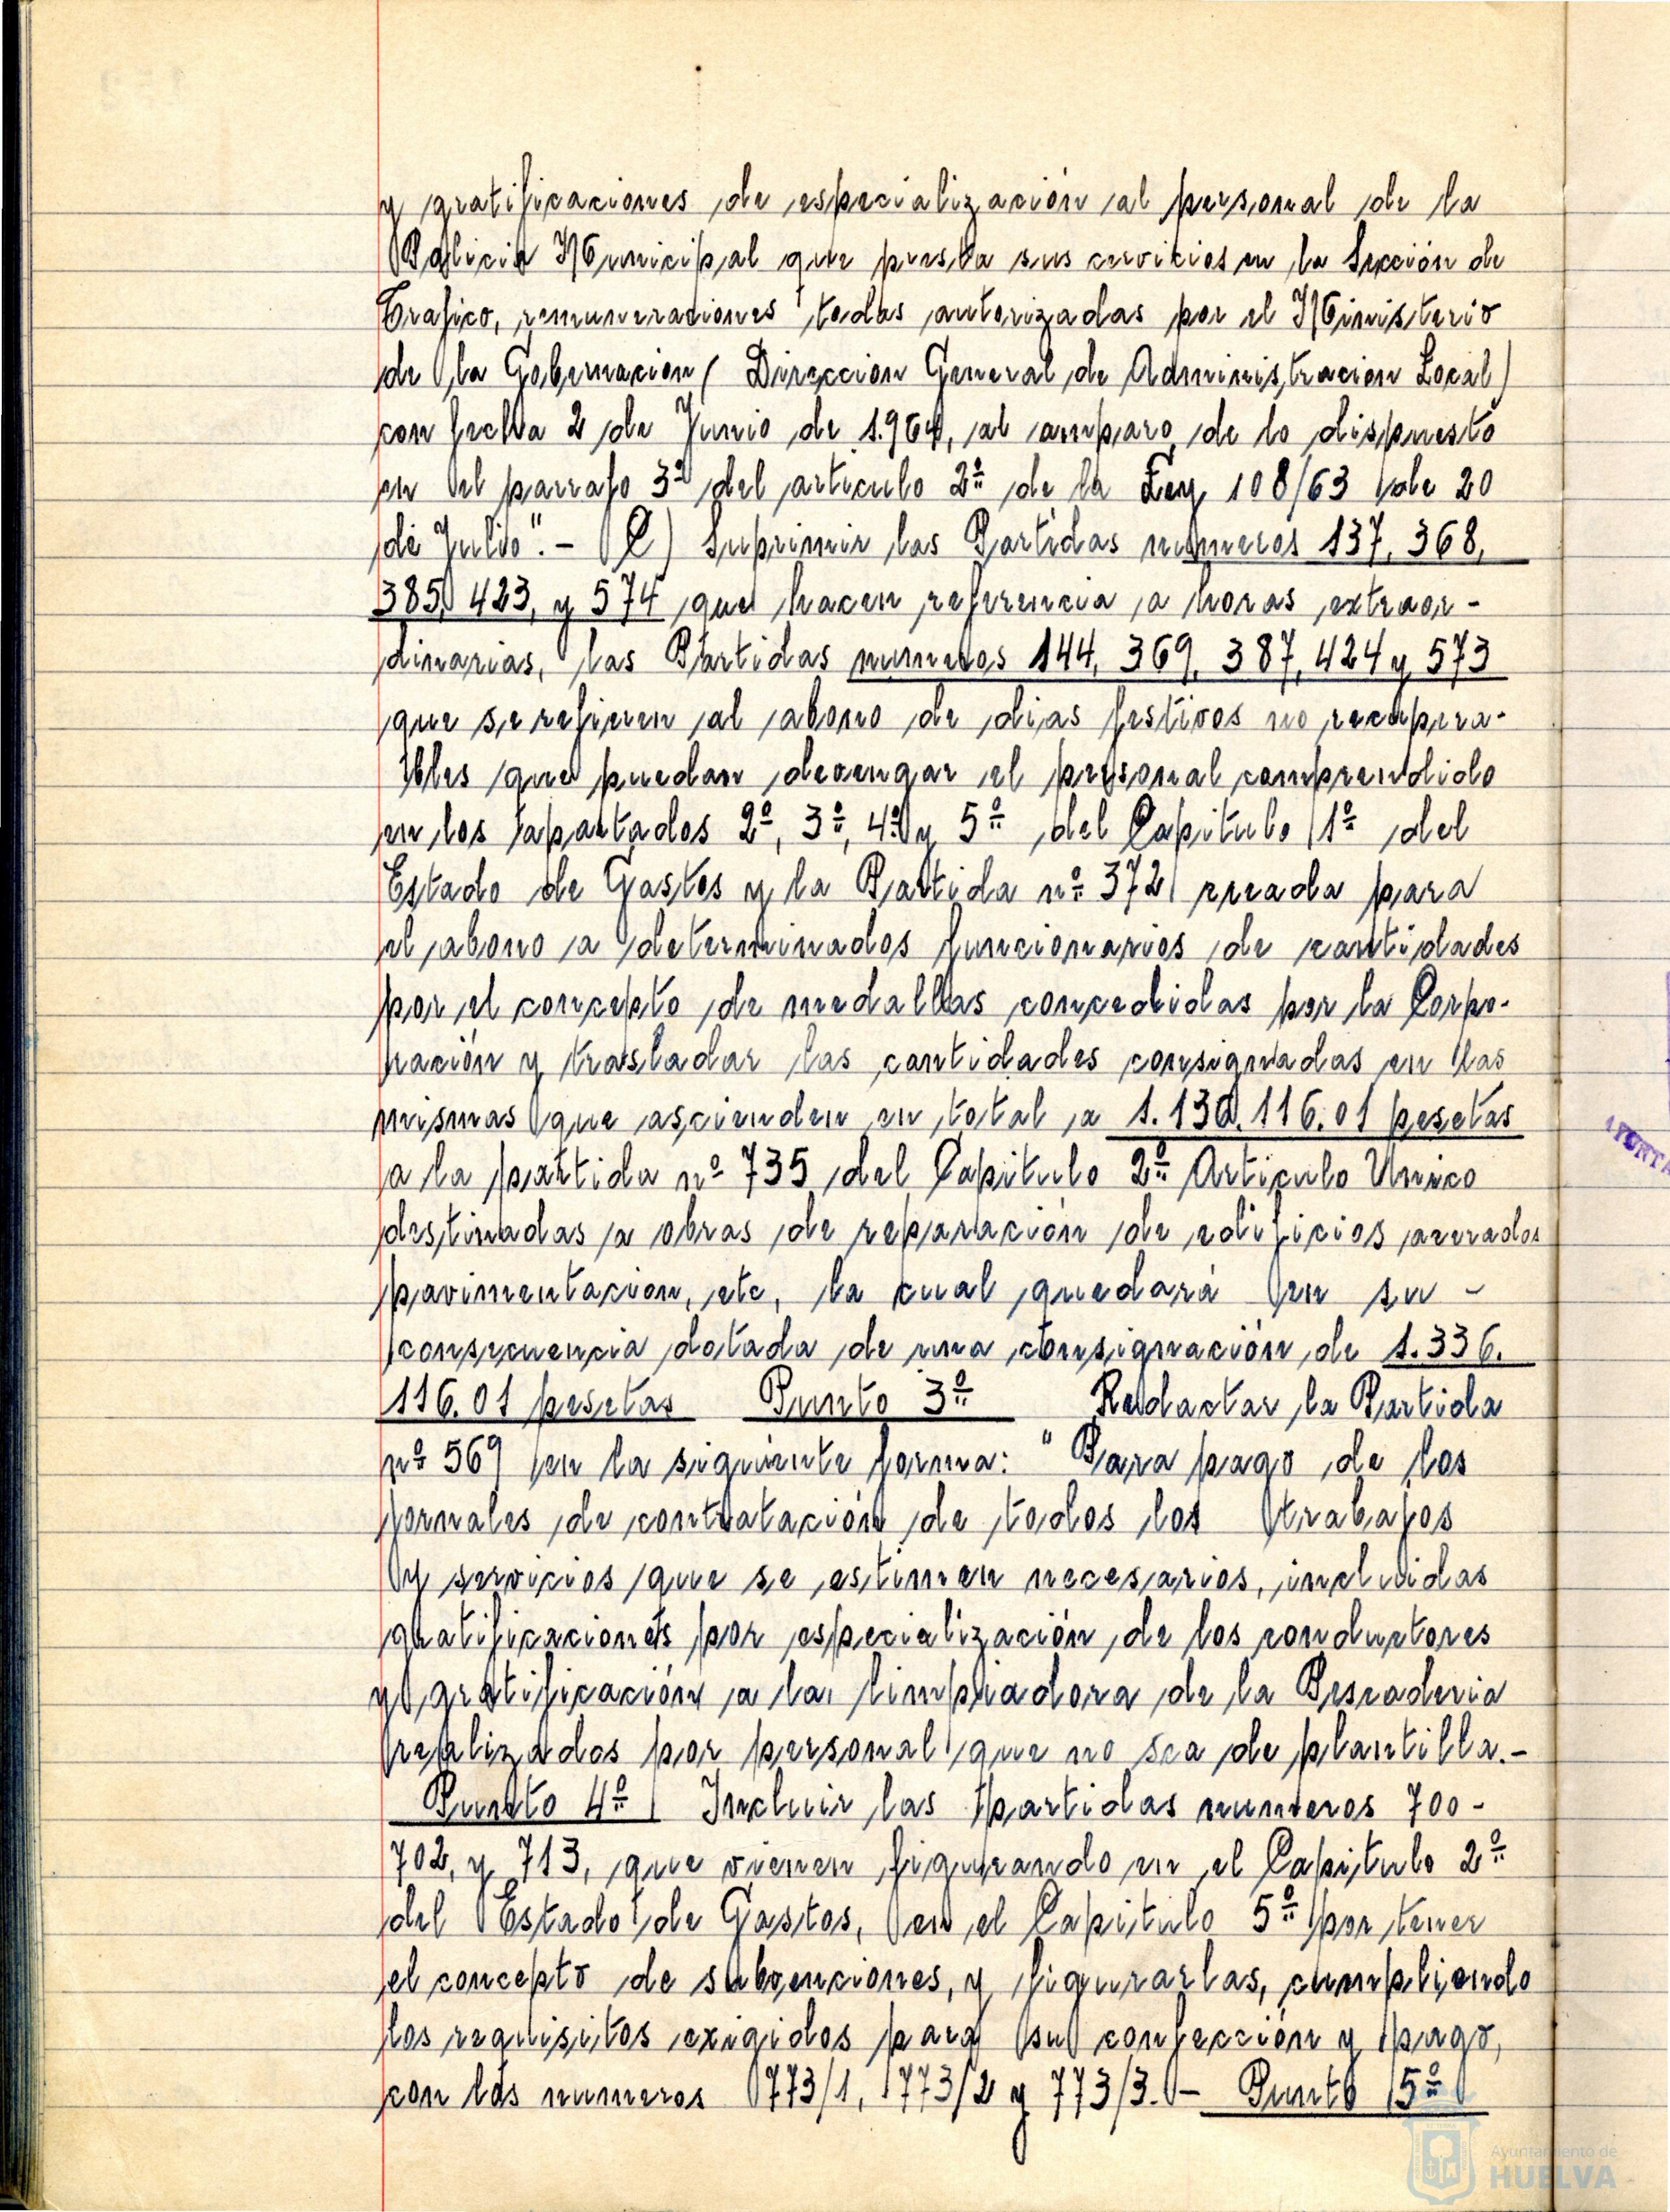 y gratificaciones de especialización al personal de la
Policia Municipal que presta sus servicios en la Sección de
Trafico, remuneraciones todas autorizadas por el Ministerio
de la Gobernacion (Direccion General de Administracion Local)
con fecha 2 de Junio de 1.964, al amparo de lo dispuesto
en el parrafo 3º del articulo 2º de la Ley 108/63 de 20
de Julio".- C) Suprimir las Partidas numeros 137, 368,
385, 423, y 574 que hacen referencia a horas extraor-
dinarias, las Partidas numeros 144, 369, 387, 424 y 573
que se refieren al abono de dias festivos no recupera-
bles que puedan devengar el personal comprendido
en los apartados 2º, 3º, 4º y 5º del Capitulo 1º del
Estado de Gastos y la Partida nº 372 creada para
el abono a determinados funcionarios de cantidades
por el concepto de medallas concedidas por la Corpo-
ración y trasladar las cantidades consignadas en las
mismas que ascienden en total a 1.130.116.01 pesetas
a la partida nº 735 del Capitulo 2º Articulo Unico
destinadas a obras de reparación de edificios acerados
pavimentacion, etc, la cual quedará en su -
consecuencia dotada de una consignación de 1.336.
116.01 pesetas Punto 3º Redactar la Partida
nº 569 en la siguiente forma: "Para pago de los
jornales de contratación de todos los trabajos
y servicios que se estimen necesarios, incluidas
gratificaciones por especialización de los conductores
y gratificación a la limpiadora de la Pescaderia
realizados por personal que no sea de plantilla.-
Punto 4º Incluir las partidas numeros 700-
702, y 713, que vienen figurando en el Capitulo 2º
del Estado de Gastos, en el Capitulo 5º por tener
el concepto de subvenciones, y figurarlas, cumpliendo
los requisitos exigidos para su confección y pago,
con los numeros 773/1, 773/2 y 773/3.- Punto 5º
Ayuntamiento de
HUELVA